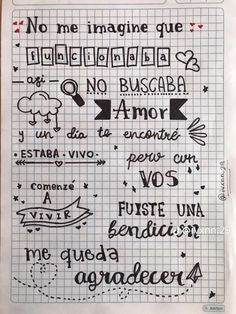 No me imagine que
funcionaba
así
NO BUSCABA
Amor
y un día te encontré
ESTABA VIVO
pero con
VOS
comenzé
A
VIVIR
FUISTE UNA
bendición
me queda
agradecer